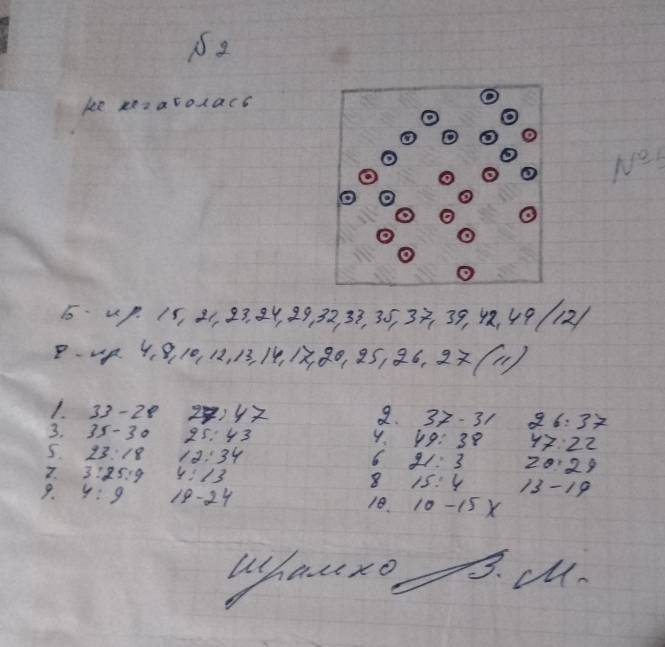 № 2
не печаталась
№
Б - пр. 15, 21, 23, 24, 29, 32, 33, 35, 37, 39, 42, 49 (12)
Ч - пр. 4, 8, 10, 12, 13, 14, 17, 20, 25, 26, 27 (11)
1. 33-28 27:47 2. 37-31 26:37
3. 35-30 25:43 4. 49:38 47:22
5. 23:18 12:34 6 21:3 20:29
7. 3:25:9 4:13 8 15:4 13-19
9. 4:9 19-24 10. 10-15 X
В. М.